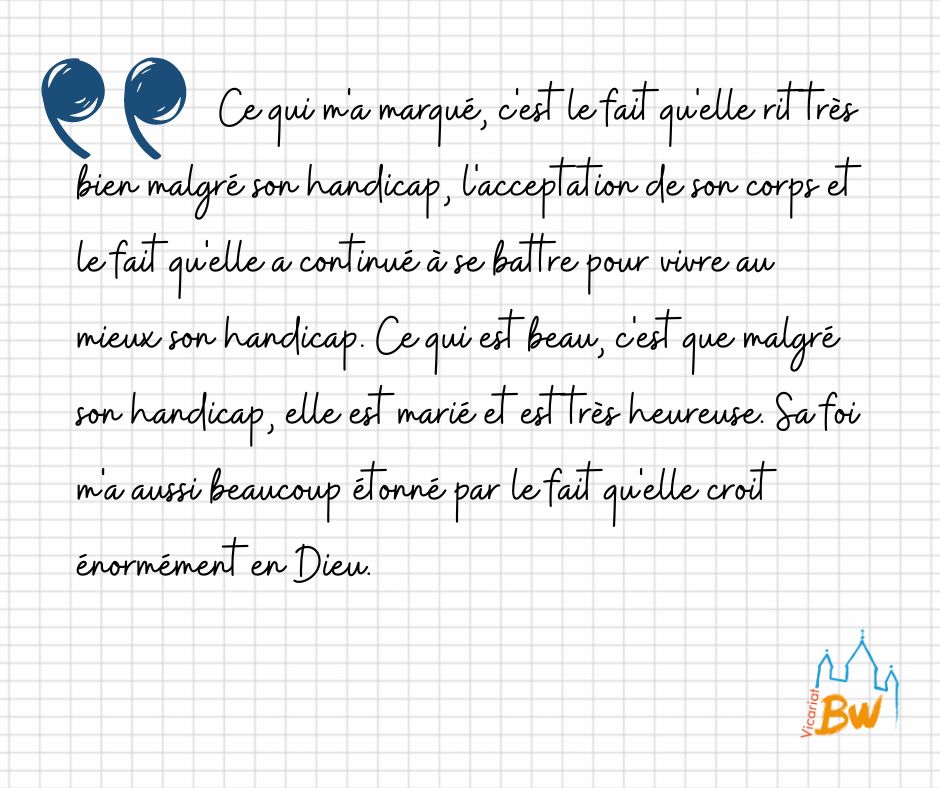 Ce qui m'a marqué, c'est le fait qu'elle rit très
bien malgré son handicap, l'acceptation de son corps et
le fait qu'elle a continué à se battre pour vivre au
mieux son handicap. Ce qui est beau, c'est que malgré
son handicap, elle est marié et est très heureuse. Sa foi
m'a aussi beaucoup étonné par le fait qu'elle croit
énormément en Dieu.
Vicariat
BW